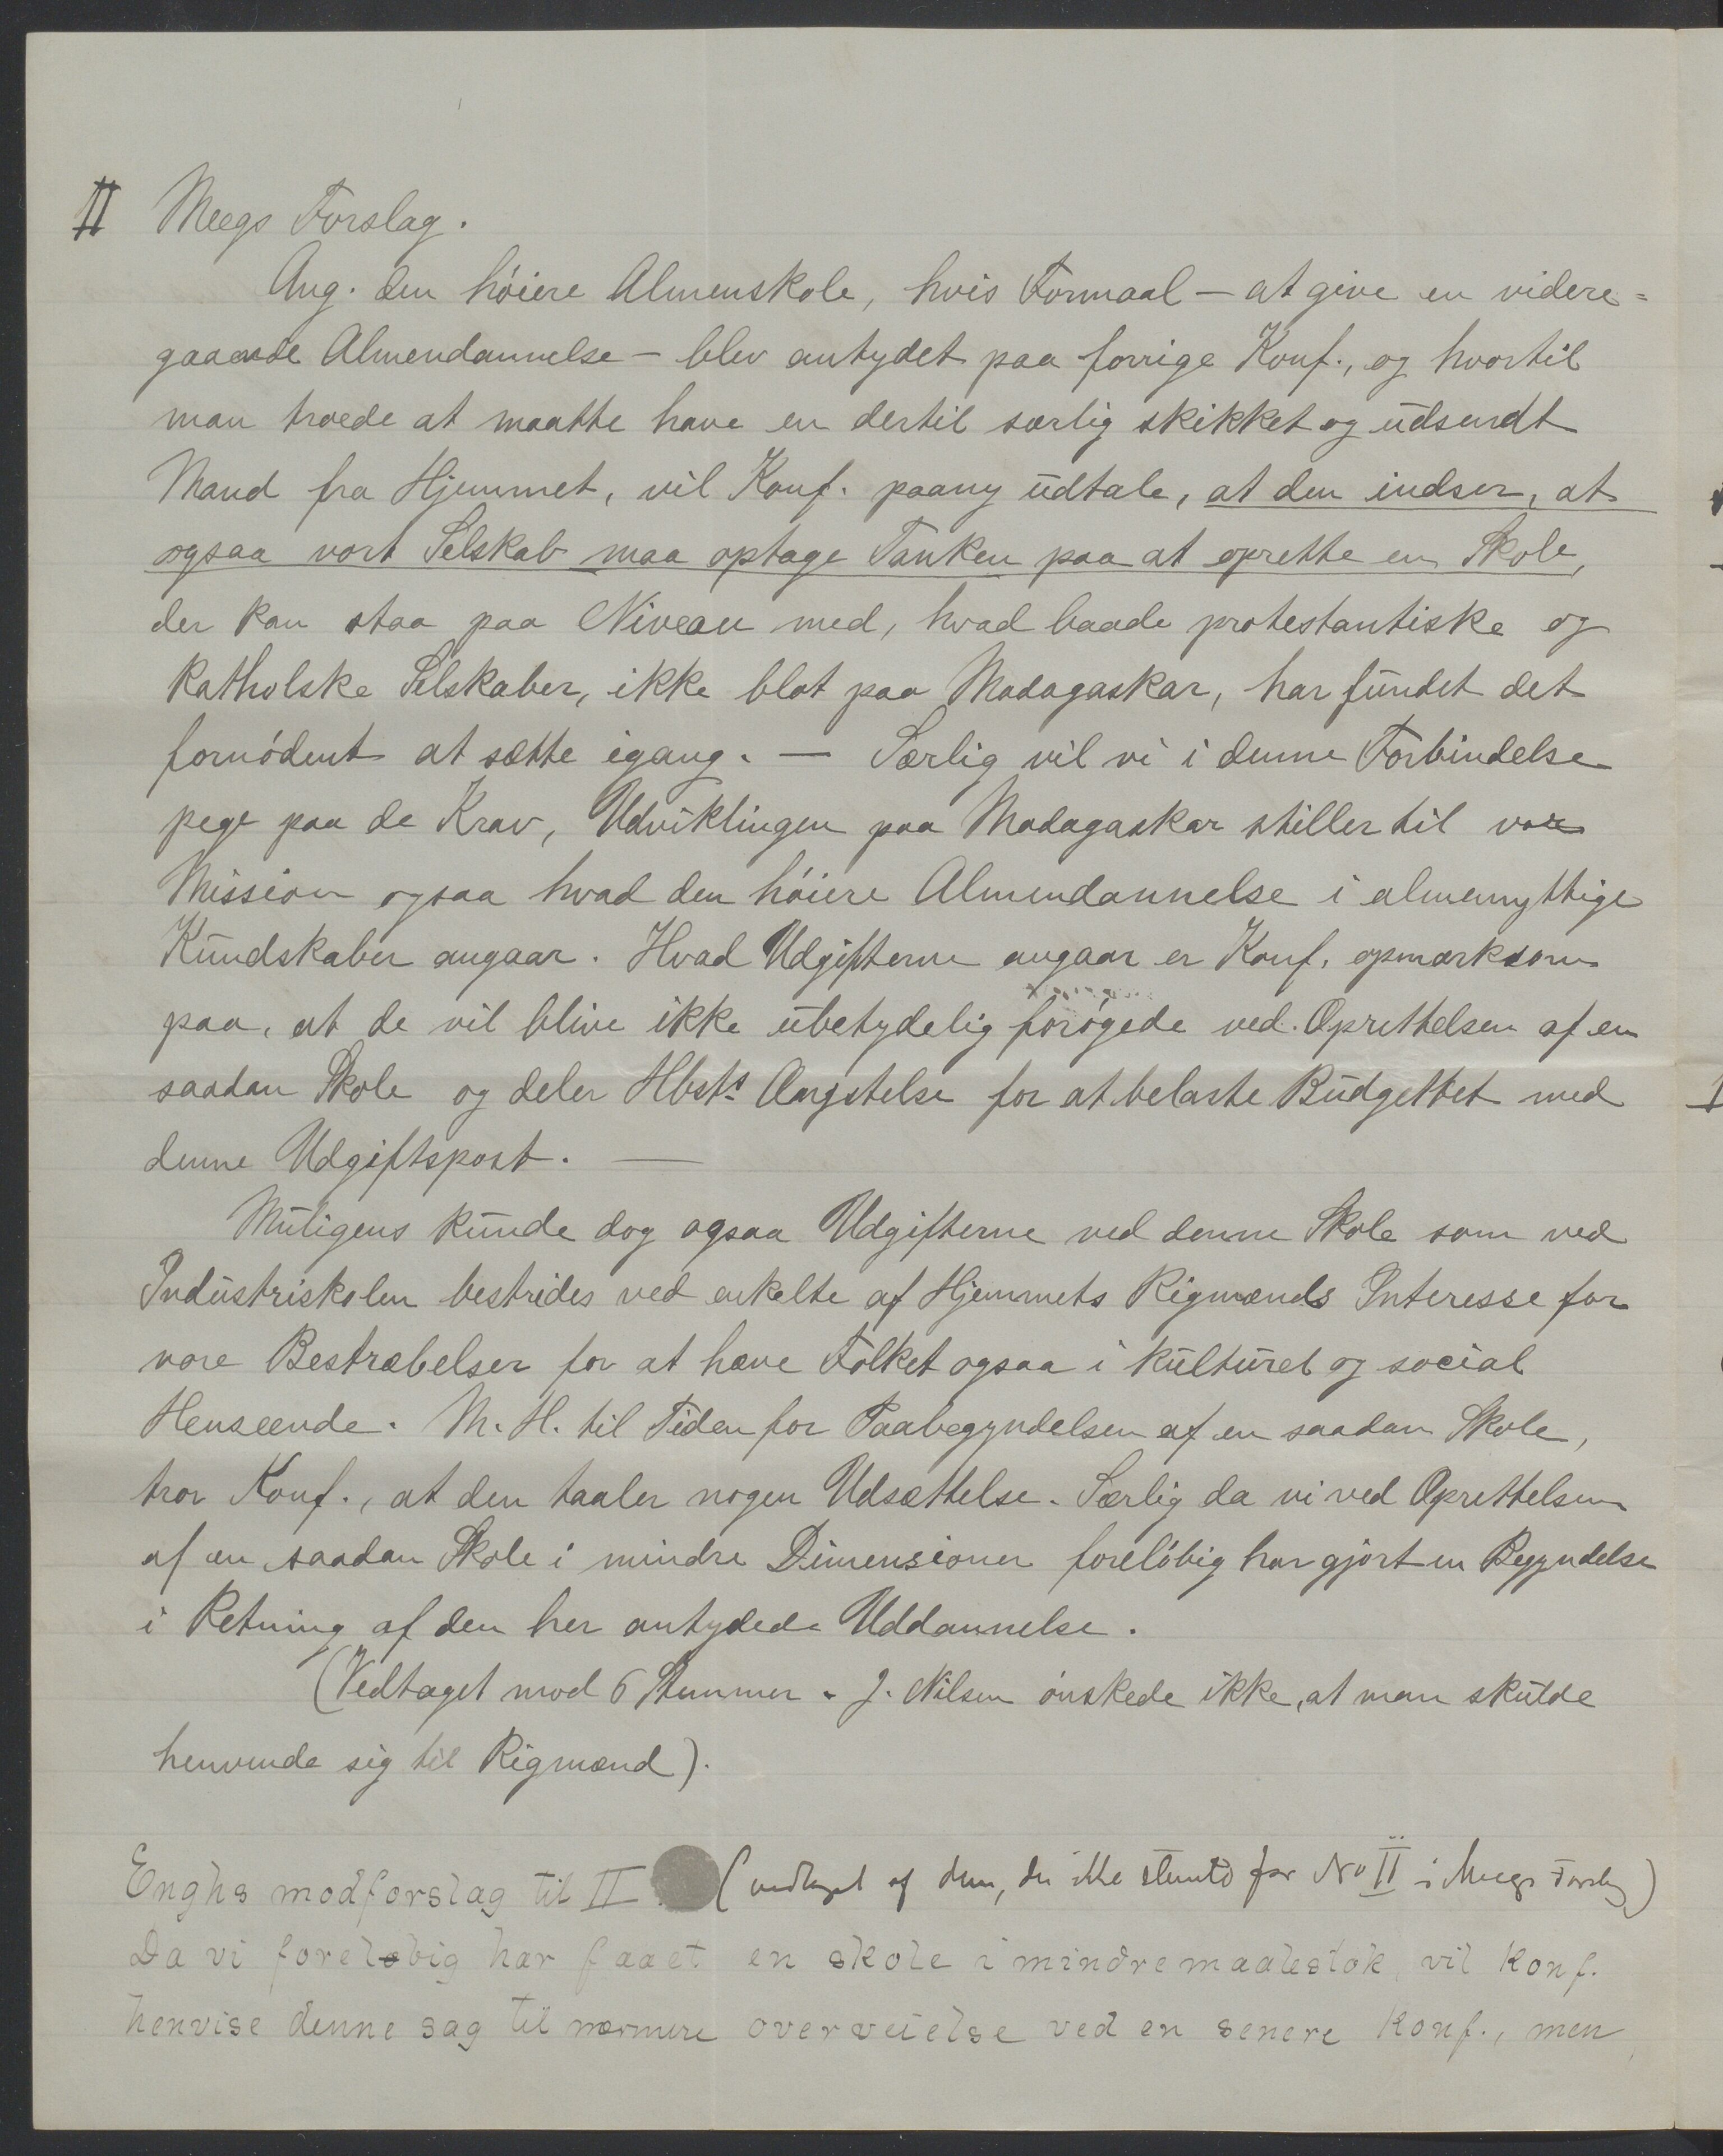 II Meegs Forslag.
Ang. den höiere Almenskole, hvis Formaal — at give en videre=
gaaende Almendannelse — blev antydet paa forrige Konf., og hvortil
man troede at maatte have en dertil særlig skikket og udsendt
Mand fra Hjemmet, vil Konf. paany udtale, at den indser, at
ogsaa vort Selskab maa optage Tanken paa at oprette en Skole,
der kan staa paa Niveau med, hvad baade protestantiske og
katholske Selskaber, ikke blot paa Madagaskar, har fundet det
fornödent at sætte igang. — Særlig vil vi i denne Forbindelse
pege paa de Krav, Udviklingen paa Madagaskar stiller til vor
Mission ogsaa hvad den höiere Almendannelse i almennyttige
Kundskaber angaar. Hvad Udgifterne angaar er Konf. opmærksom
paa, at de vil blive ikke ubetydelig forögede ved Oprettelsen af en
saadan Skole og deler Hbsts Ængstelse for at belaste Budgettet med
denne Udgiftspost. —
Muligens kunde dog ogsaa Udgifterne ved denne Skole som ved
Industriskolen bestrides ved enkelte af Hjemmets Rigmænds Interesse for
vore Bestræbelser for at hæve Folket ogsaa i kulturel og social
Henseende. M. H. til Tiden for Paabegyndelsen af en saadan Skole,
tror Konf., at den taaler nogen Udsættelse. Særlig da vi ved Oprettelsen
af en saadan Skole i mindre Dimensioner forelöbig har gjort en Begyndelse
i Retning af den her antydede Uddannelse.
(Vedtaget mod 6 Stemmer. J. Nilsen önskede ikke, at man skulde
henvende sig til Rigmænd).
Enghs modforslag til II. (vedtaget af dem, der ikke stemte for No II i Meegs Forslag)
Da vi foreløbig har faaet en skole i mindre maalestok, vil Konf.
henvise denne sag til nærmere overveielse ved en senere Konf., men